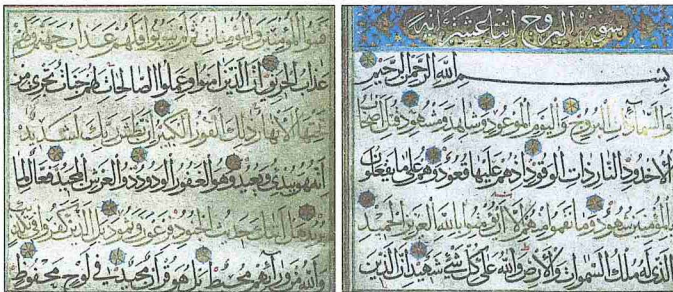 سورة البروج اثنتا عشر آية
بسم الله الرحمن الرحيم
والسماء ذات البروج واليوم الموعود وشاهد ومشهود قتل اصحاب
الاخدود النار ذات الوقود اذ هم عليها قعود وهم على ما يفعلون
بالمؤمنين شهود وما نقموا منهم الا ان يؤمنوا بالله العزيز الحميد
الذي له ملك السموات والارض والله على كل شئ شهيد ان الذين
فتنوا المؤمنين والمؤمنات ثم لم يتوبوا فلهم عذاب جهنم ولهم
عذاب الحريق ان الذين امنوا وعملوا الصالحات لهم جنات تجري من
تحتها الانهار ذلك الفوز الكبير ان بطش ربك لشديد
انه هو يبدئ ويعيد وهو الغفور الودود ذو العرش المجيد فعال لما
يريد هل اتاك حديث الجنود فرعون وثمود بل الذين كفروا في تكذيب
والله من ورائهم محيط بل هو قرآن مجيد في لوح محفوظ